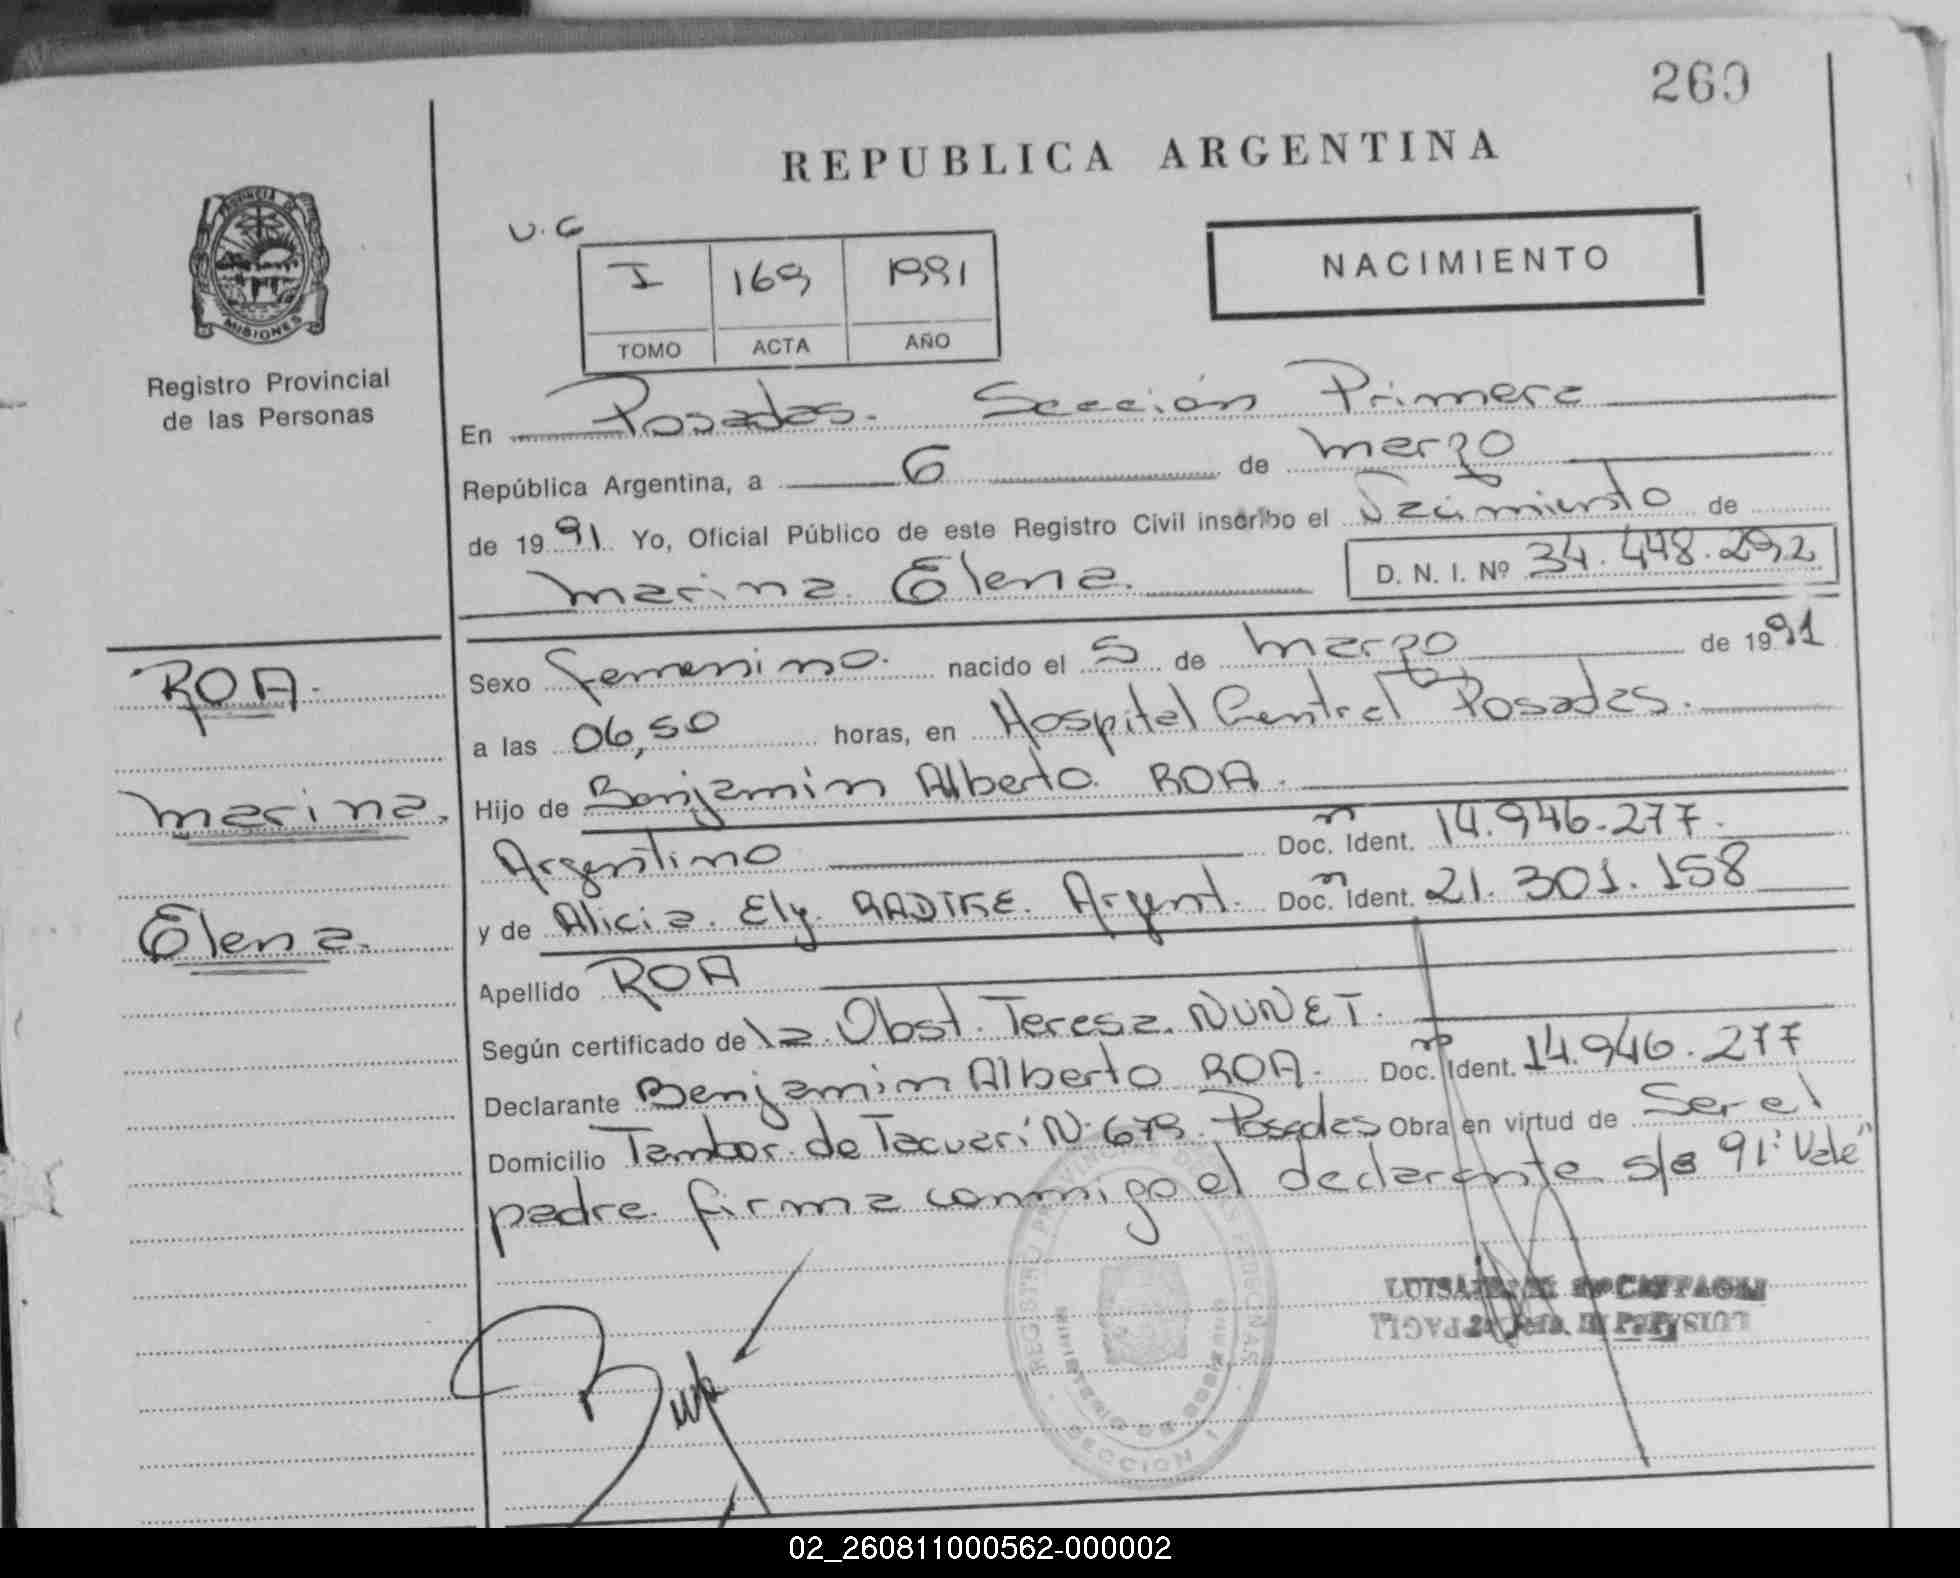 269
REPUBLICA ARGENTINA
PROVINCIA DE
MISIONES
Registro Provincial
de las Personas
U.G
I 169 1991
TOMO ACTA AÑO
NACIMIENTO
En Posadas. Sección Primera
República Argentina, a 6 de marzo
de 1991 Yo, Oficial Público de este Registro Civil inscribo el Nacimiento de
D. N. I. Nº 34.448.292
Marina Elena.
ROA.
Marina,
Elena.
Sexo femenino. nacido el 5 de marzo de 1991
a las 06,50 horas, en Hospital Central Posadas.
Hijo de Benjamin Alberto ROA.
Argentino Doc. Ident. 14.946.277.
y de Alicia Ely. RADTKE. Argent. Doc. Ident. 21.301.158
Apellido ROA
Según certificado de la Obst. Teresa NUÑET.
Declarante Benjamin Alberto ROA. Doc. Ident. 14.946.277
Domicilio Tambor de Tacuarí Nº 679. Posadas Obra en virtud de Ser el
padre firma conmigo el declarante s/e 91: Vale"
REGISTRO PROVINCIAL DE LAS PERSONAS
MINISTERIO DE GOBIERNO
SECCION 1
02_260811000562-000002